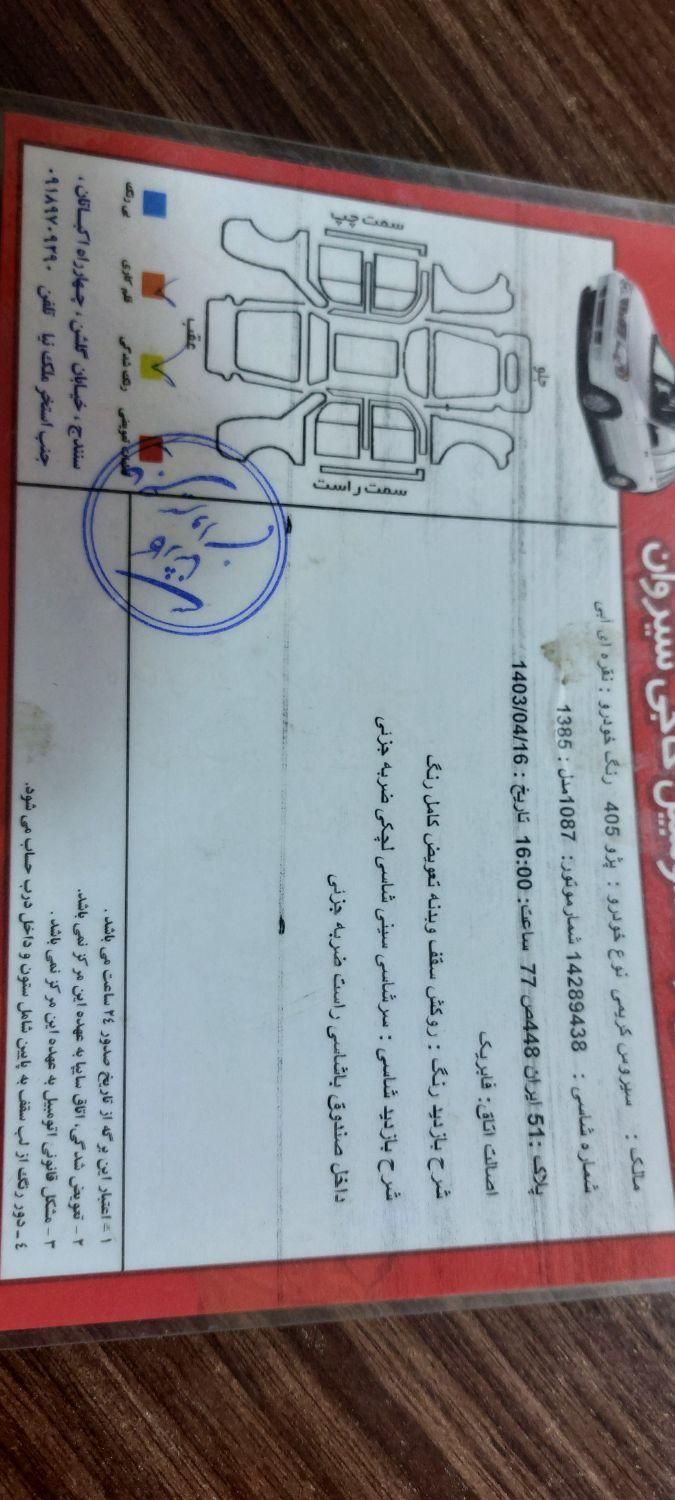 سیروان
مالک : سیروس کریمی نوع خودرو : پژو 405 رنگ خودرو : نقره ای ابی
شماره شاسی : 14289438 شمارموتور: 1087مدل : 1385
پلاک :51 ایران 448ص 77 ساعت: 16:00 تاریخ : 1403/04/16
اصالت اتاق: فابریک
شرح بازدید رنگ : روکش سقف وبدنه تعویض کامل رنگ
شرح بازدید شاسی : سرشاسی سینی شاسی لچکی ضربه جزئی
داخل صندوق باشاسی راست ضربه جزئی
سمت چپ
جلو
عقب
سمت راست
بی رنگ
قلم کاری
رنگ شدگی
سنندج ، خیابان گلشن ، چهارراه اکباتان ،
جنب استخر ملک نیا تلفن ۰۹۱۸۹۷۰۹۲۹۰
۱ - اعتبار این برگه از تاریخ صدور ۲۴ ساعت می باشد .
۲ - تعویض شدگی، اتاق سایپا به عهده این مرکز نمی باشد.
۳ - مشکل قانونی اتومبیل به عهده این مرکز نمی باشد .
٤ - دور رنگ از لب سقف به پایین شامل ستون و داخل درب حساب می شود.